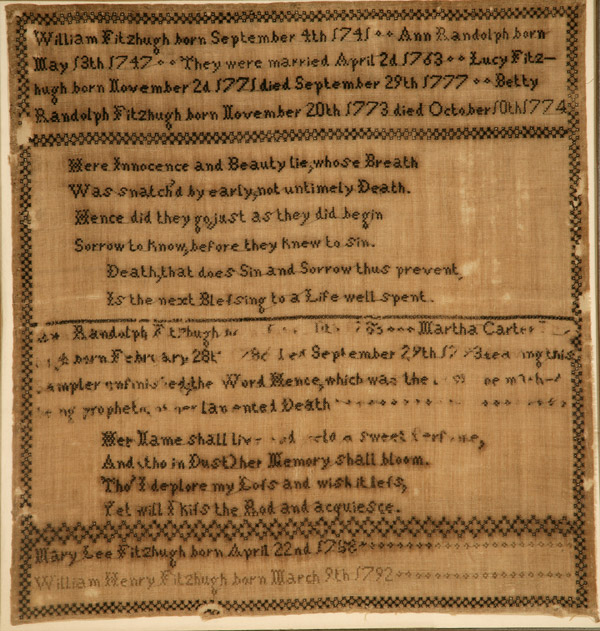 William Fitzhugh born September 4th 1741 Ann Randolph born
May 13th 1747 They were married April 2d 1763 Lucy Fitz-
hugh born November 2d 1771 died September 29th 1777 Betty
Randolph Fitzhugh born November 20th 1773 died October 10th 1774
Here Innocence and Beauty lie, whose Breath
Was snatch'd by early, not untimely Death.
Hence did they go, just as they did begin
Sorrow to know, before they knew to sin.
Death, that does Sin and Sorrow thus prevent,
Is the next Blefsing to a Life well spent.
Randolph Fitzhugh Martha Carter
born February 28th September 29th this
sampler unfinished, the Word Hence, which was the
Death
Her Name shall live sweet
And (tho in Dust) her Memory shall bloom.
Tho' I deplore my Lofs and wish it lefs,
Yet will I kifs the Rod and acquiesce.
Mary Lee Fitzhugh born April 22nd
William Henry Fitzhugh born March 9th 1792